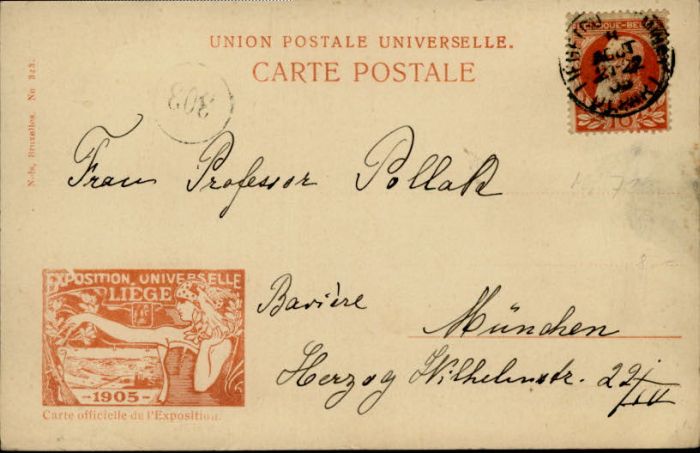 UNION POSTALE UNIVERSELLE.
CARTE POSTALE
N-ls, Bruxelles. No 323.
303
Frau Professor Pollak
Bavière
München
Herzog Wilhelmstr. 22/III
EXPOSITION UNIVERSELLE
LIÉGE
1905
Carte officielle de l'Exposition.
10